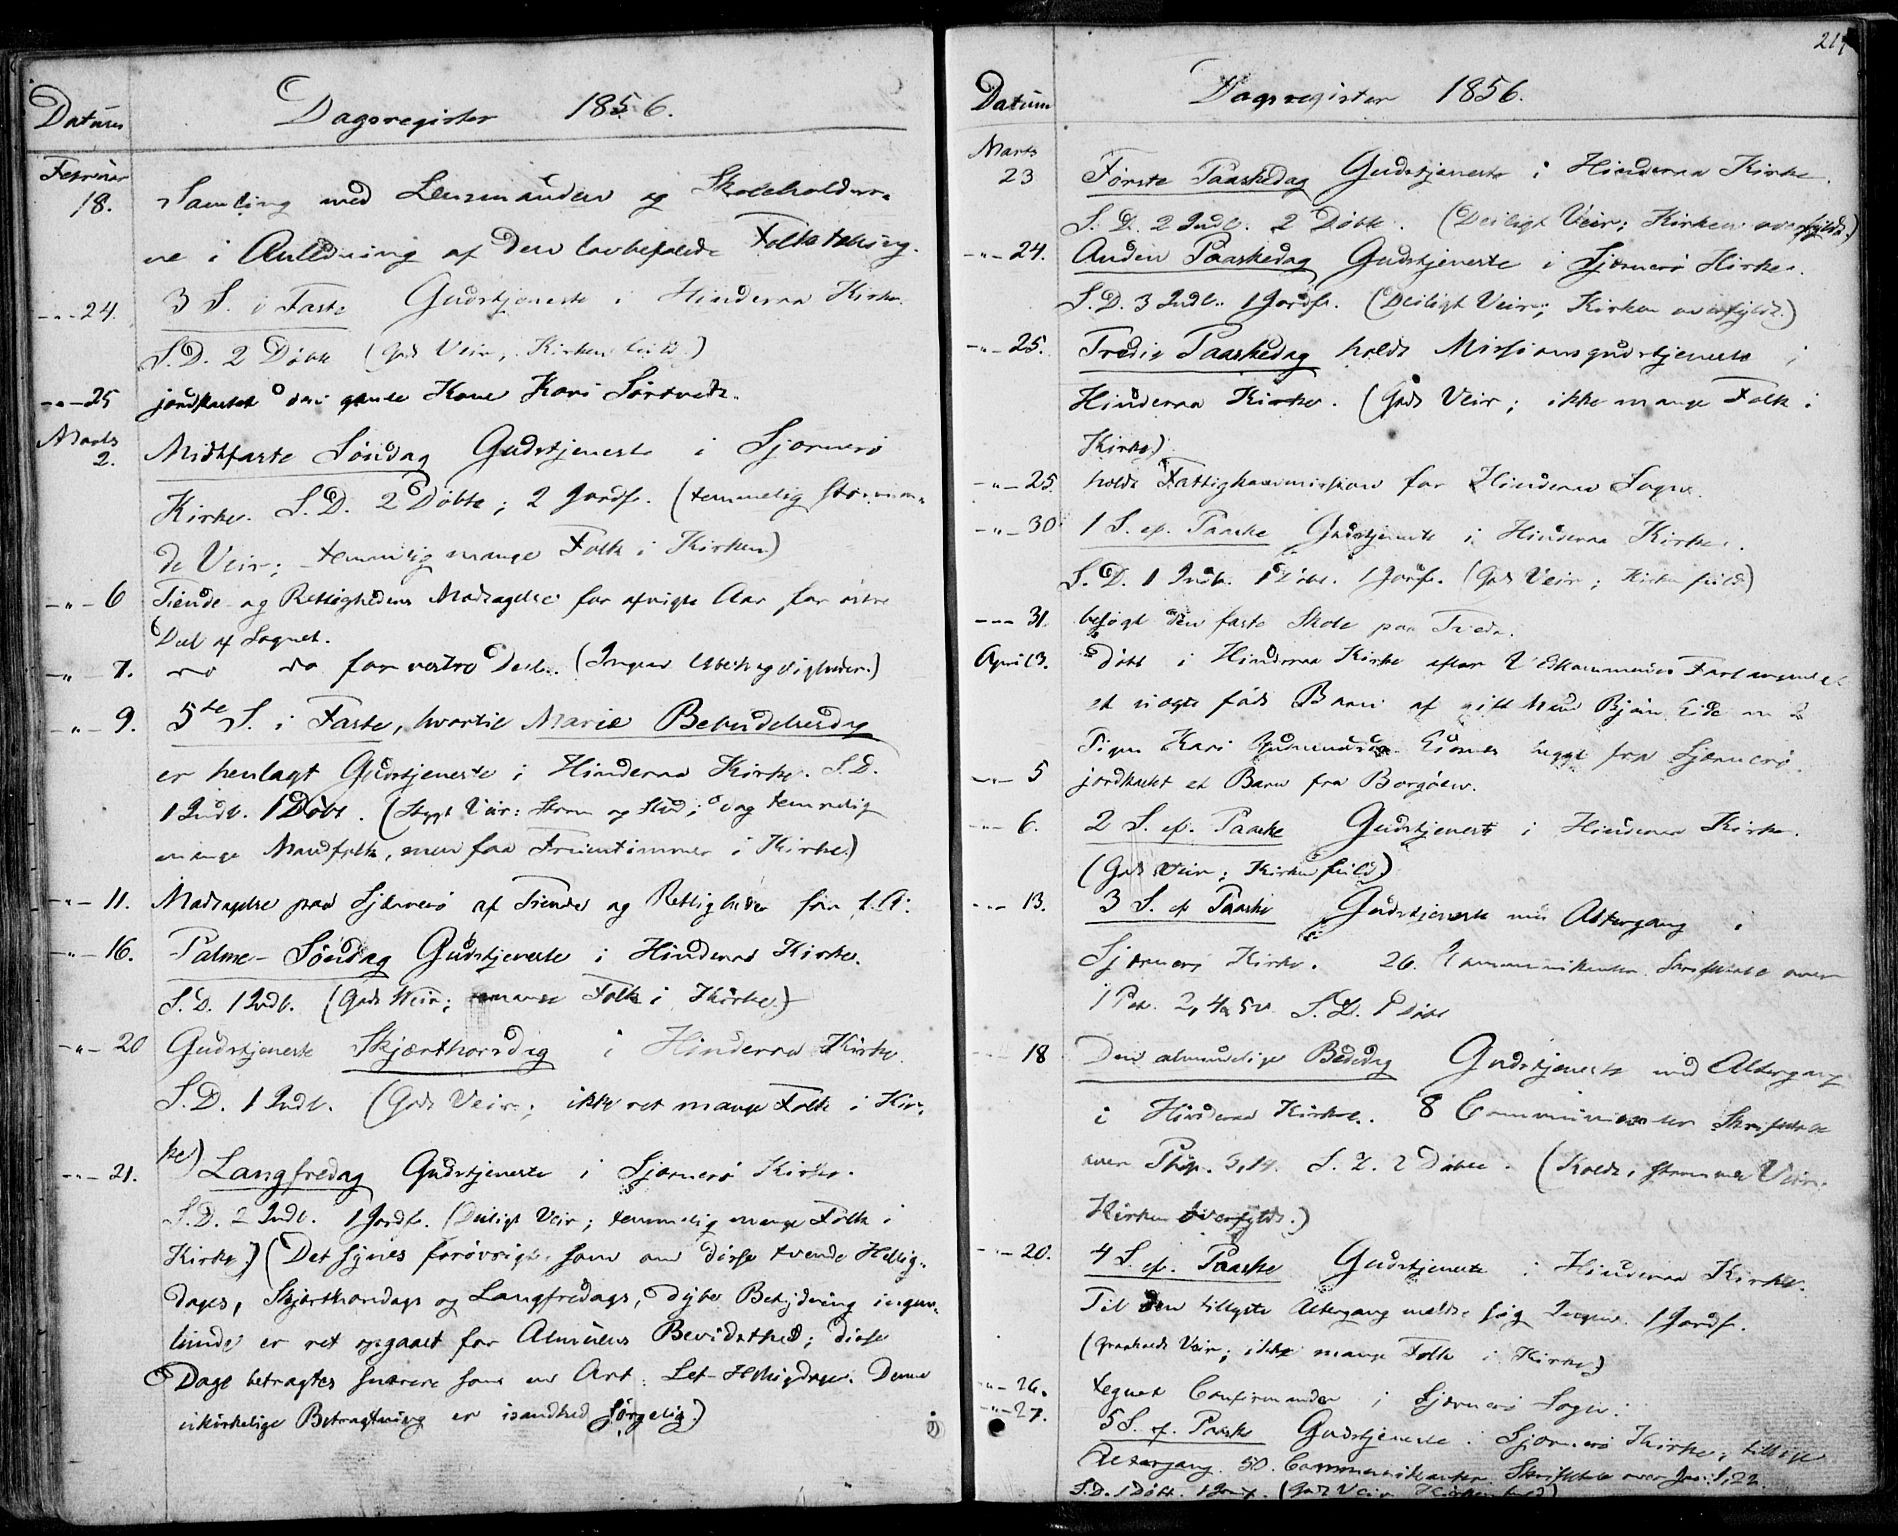 Datum
Dagsregister 1856.
Februar
18. Samling med Lensmanden og Skoleholder-
ne i Anledning af den lovbefalede Folketælling.
-"- 24. 3 S. i Faste Gudstjeneste i Hinderaa Kirke.
S. D. 2 Døbte (Godt Veir, Kirken fuld)
-"- 25 jordfæstet den gamle Kone Kari Sørtvedt.
Marts
2. Midtfaste Søndag Gudstjeneste i Sjernerø
Kirke. S. D. 2 Døbte; 2 Jordf. (temmelig stormen-
de Veir; temmelig mange Folk i Kirken.)
-"- 6 Tiende- og Rettigheders Modtagelse for afvigte Aar for østre
Deel af Sognet.
-"- 7. do do for vestre Deel. (Ingen Ubehageligheder.)
-"- 9. 5te S. i Faste, hvortil Mariæ Bebudelsesdag
er henlagt Gudstjeneste i Hinderaa Kirke. S. D.
1 Indl. 1 Døbt. (Stygt Veir: Storm og Slud; dog temmelig
mange Mandfolk, men faa Fruentimmer i Kirke.)
-"- 11. Modtagelse paa Sjernerø af Tiende og Rettigheder for f. A.
-"- 16. Palme-Søndag Gudstjeneste i Hinderaa Kirke.
S. D. 1 Indl. (Godt Veir; mange Folk i Kirke.)
-"- 20 Gudstjeneste Skjærthorsdag i Hinderaa Kirke.
S. D. 1 Indl. (Godt Veir; ikke ret mange Folk i Kir-
ke)
-"- 21. Langfredag Gudstjeneste i Sjernerø Kirke.
S. D. 2 Indl. 1 Jordf. (Deiligt Veir; temmelig mange Folk i
Kirke.) (Det synes forøvrigt som om disse tvende Hellig-
dages, Skjærthorsdags og Langfredags, dybe Betydning ingen-
lunde er ret opgaaet for Almuens Bevidsthed; disse
Dage betragtes snarere som en Art Let-Helligdage. Denne
ukirkelige Betragtning er isandhed sørgelig.)
Datum
Dagsregister 1856.
Marts
23 Første Paaskedag Gudstjeneste i Hinderaa Kirke.
S. D. 2 Indl. 2 Døbte. (Deiligt Veir; Kirken overfyldt.)
-"- 24. Anden Paaskedag Gudstjeneste i Sjernerø Kirke.
S. D. 3 Indl. 1 Jordf. (Deiligt Veir; Kirken overfyldt.)
-"- 25. Tredie Paaskedag holdt Missionsgudstjeneste i
Hinderaa Kirke. (Godt Veir; ikke mange Folk i
Kirke.)
-"- 25. holdt Fattigkommission for Hinderaa Sogn.
-"- 30 1 S. ef. Paaske Gudstjeneste i Hinderaa Kirke.
S. D. 1 Indl. 1 Døbt. 1 Jordf. (Godt Veir; Kirken fuld)
-"- 31. besøgt den faste Skole paa Tveit.
April 3. Døbt i Hinderaa Kirke efter Vedkommendes Forlangende
et uægte født Barn af gift Mand Bjørn Eide m
Pigen Kari fra Sjernerø.
-"- 5 jordfæstet et Barn fra Borgøen.
-"- 6. 2 S. ef. Paaske Gudstjeneste i Hinderaa Kirke.
(Godt Veir; Kirken fuld.)
-"- 13. 3 S. ef. Paaske Gudstjeneste med Altergang i
Sjernerø Kirke. 26 Communikanter. Skriftetale over
1 Pet. 2, 4 & 5 v. S. D. 1 Døbt
18 Den almindelige Bededag Gudstjeneste med Altergang
i Hinderaa Kirke. 8 Communikanter Skriftetale
over 3,14. S. D. 2 Døbte. (Koldt, stormende Veir.
Kirken overfyldt.)
-"- 20. 4 S. ef. Paaske Gudstjeneste i Hinderaa Kirke.
Til den tillyste Altergang meldte sig Ingen. 1 Jordf.
(Graakoldt Veir; ikke mange Folk i Kirke)
-"- 26. tegnet Confirmander i Sjernerø Sogn.
-"- 27. 5 S. ef. Paaske Gudstjeneste i Sjernerø Kirke; tillige
Altergang. 50 Communikanter. Skriftetale over Jac. 1, 22
S. D. 1 Døbt. 1 Jordf. (Godt Veir Kirken fuld)